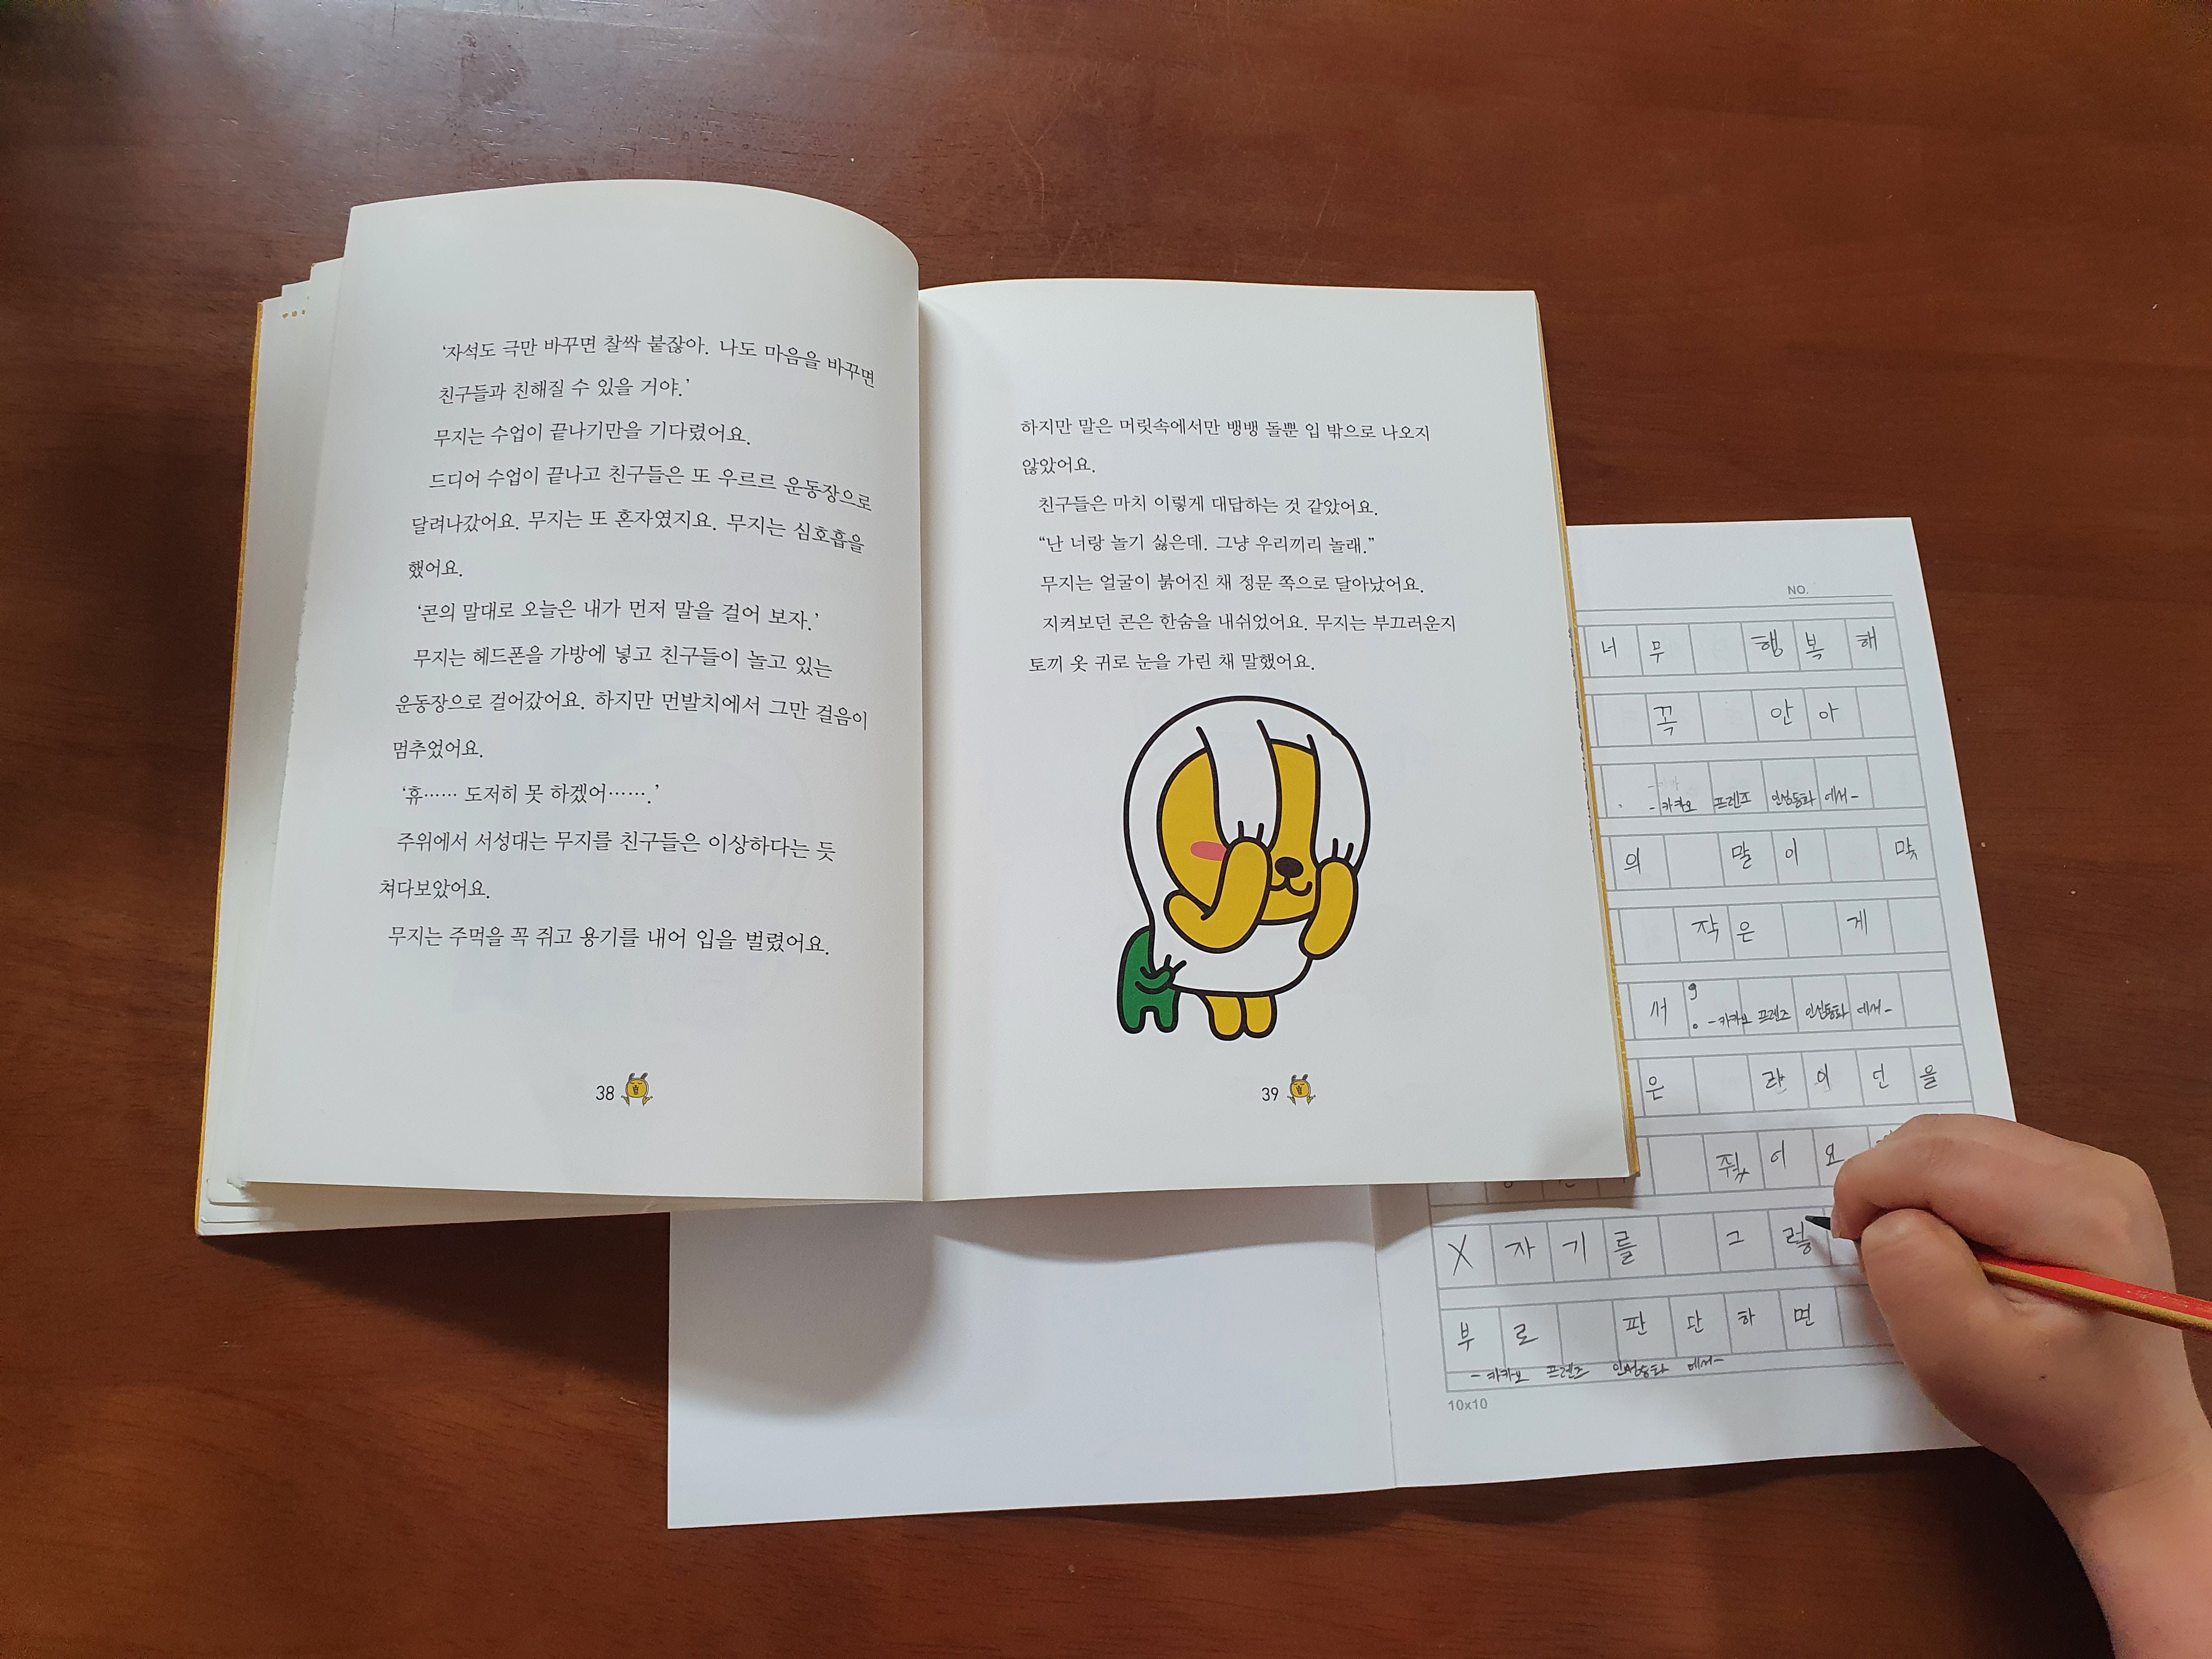 ‘자석도 극만 바꾸면 찰싹 붙잖아. 나도 마음을 바꾸면
친구들과 친해질 수 있을 거야.’
무지는 수업이 끝나기만을 기다렸어요.
드디어 수업이 끝나고 친구들은 또 우르르 운동장으로
달려나갔어요. 무지는 또 혼자였지요. 무지는 심호흡을
했어요.
‘콘의 말대로 오늘은 내가 먼저 말을 걸어 보자.’
무지는 헤드폰을 가방에 넣고 친구들이 놀고 있는
운동장으로 걸어갔어요. 하지만 먼발치에서 그만 걸음이
멈추었어요.
‘휴…… 도저히 못 하겠어…….’
주위에서 서성대는 무지를 친구들은 이상하다는 듯
쳐다보았어요.
무지는 주먹을 꼭 쥐고 용기를 내어 입을 벌렸어요.
38
하지만 말은 머릿속에서만 뱅뱅 돌뿐 입 밖으로 나오지
않았어요.
친구들은 마치 이렇게 대답하는 것 같았어요.
“난 너랑 놀기 싫은데. 그냥 우리끼리 놀래.”
무지는 얼굴이 붉어진 채 정문 쪽으로 달아났어요.
지켜보던 콘은 한숨을 내쉬었어요. 무지는 부끄러운지
토끼 옷 귀로 눈을 가린 채 말했어요.
39
NO.
너무 행복해
꼭 안아
. -카카오 프렌즈 인성동화 에서-
의 말이 맞
작은 게
서?. -카카오 프렌즈 인성동화 에서-
은 라이언을
줬어요
X자기를 그렇
부로 판단하면
-카카오 프렌즈 인성동화 에서-
10x10